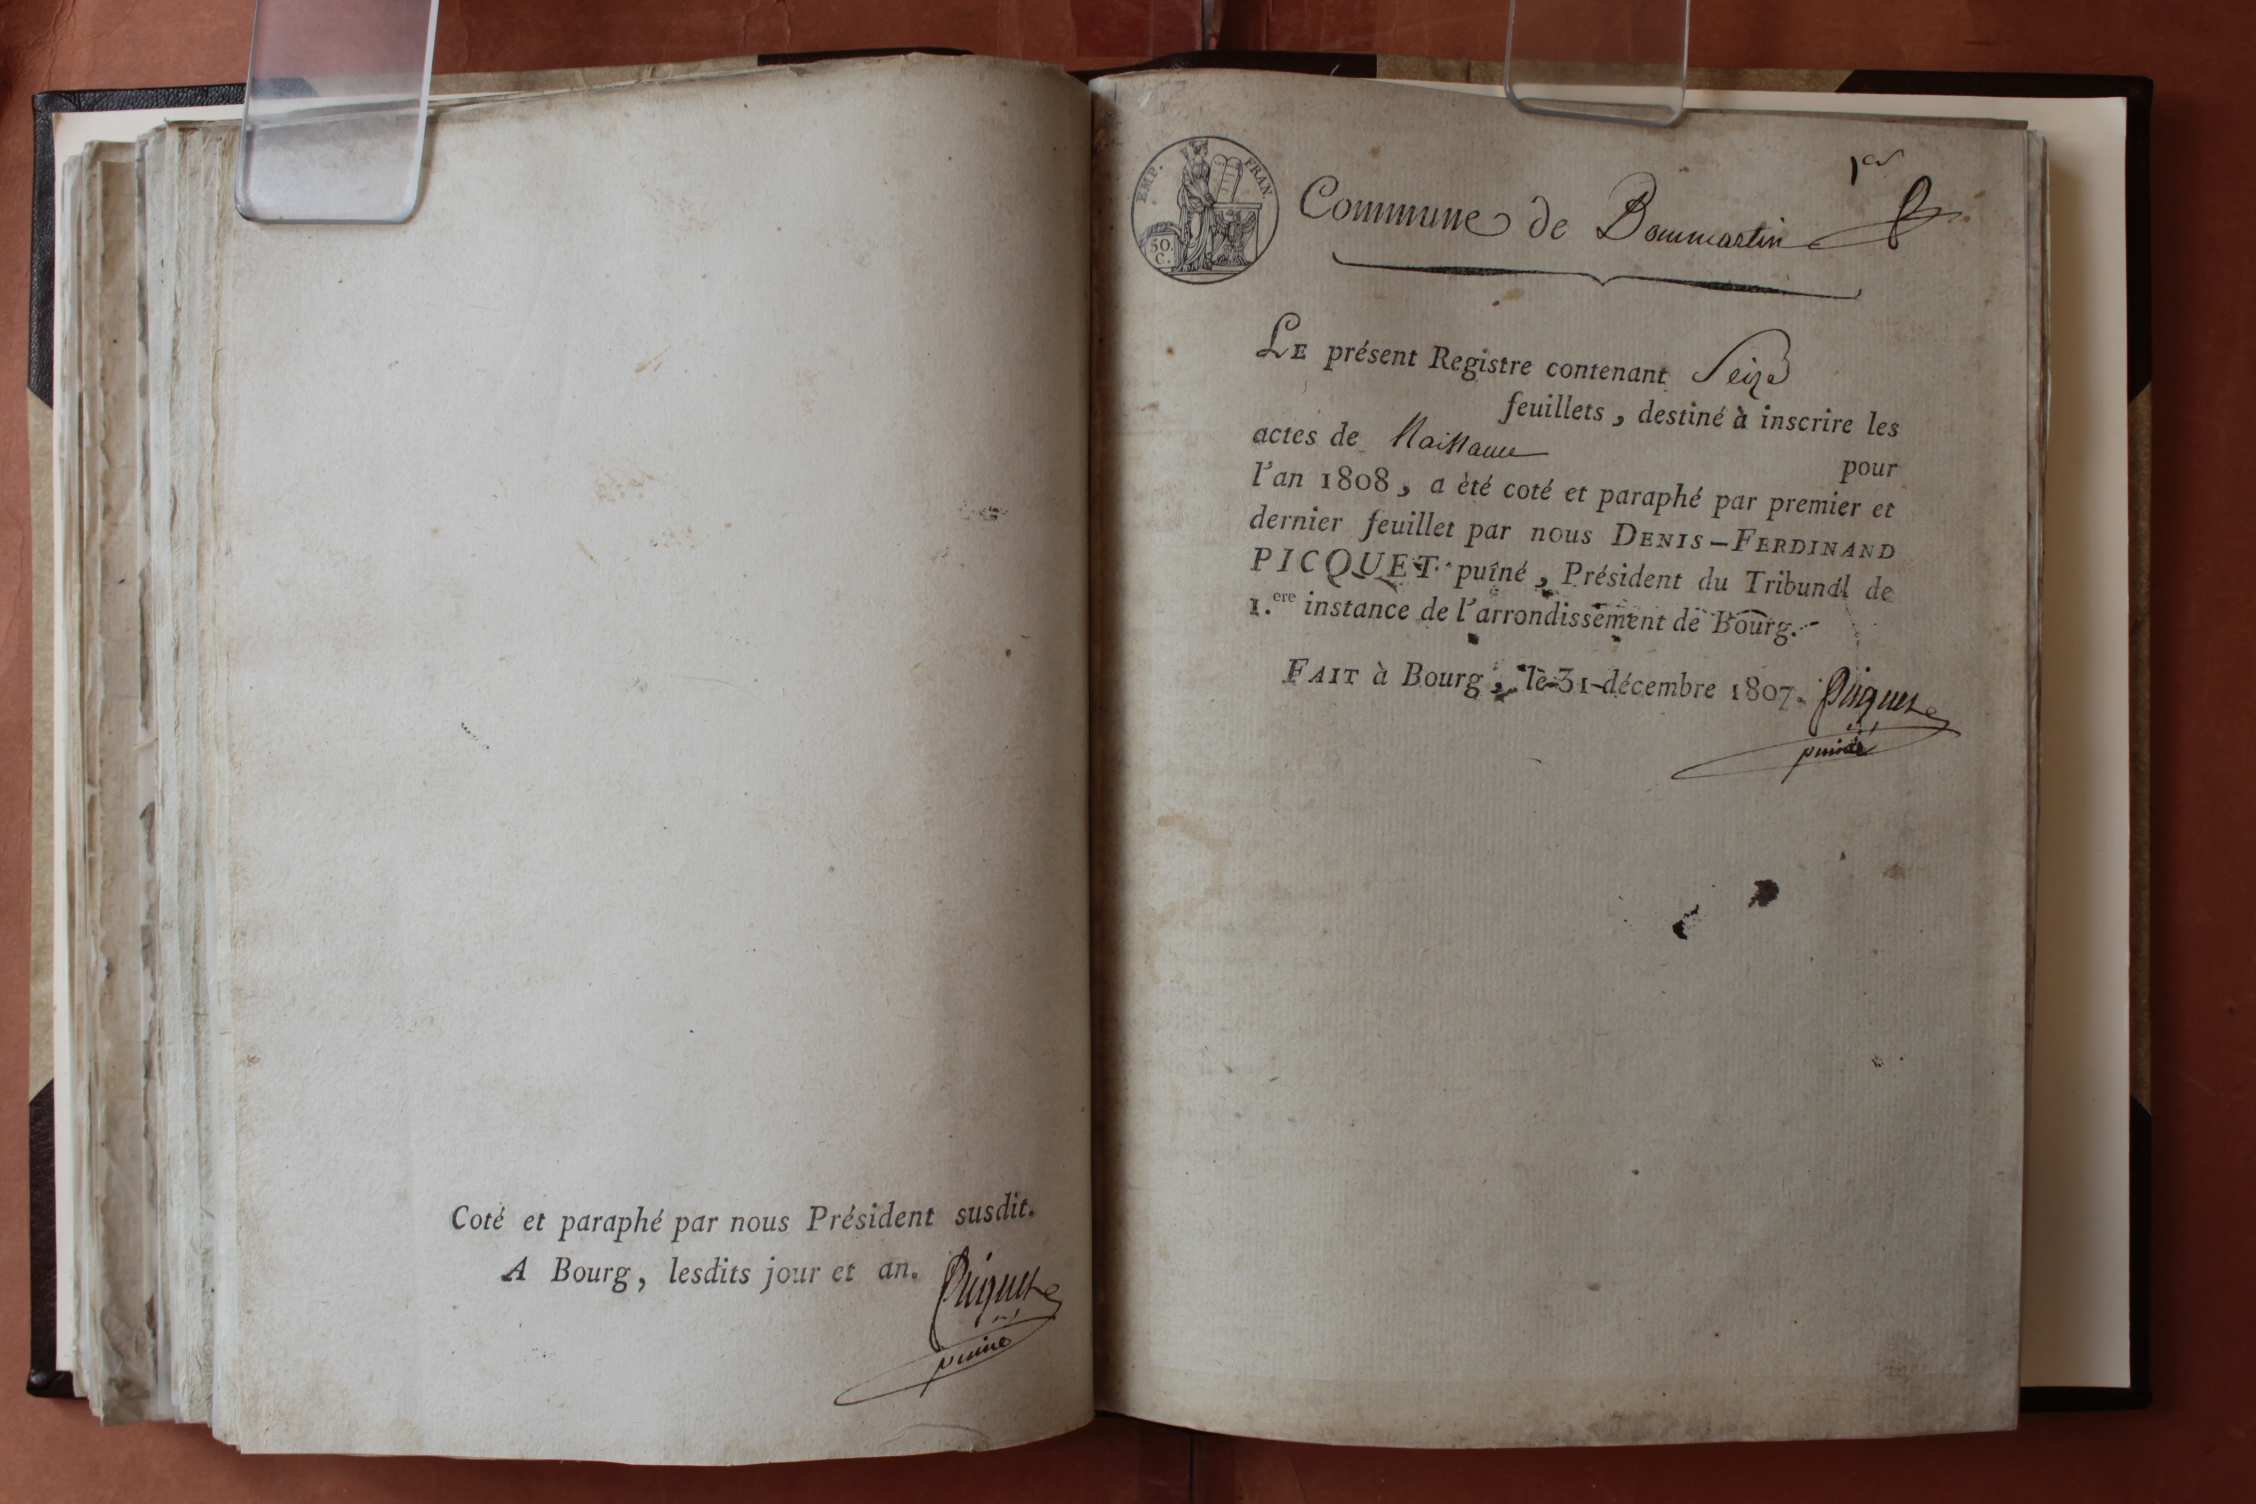 Coté et paraphé par nous Président susdit.
A Bourg, lesdits jour et an. Picquet
puiné
1er
EMP. FRAN.
50.
C.
Commune de Dommartin
LE présent Registre contenant Seize
feuillets, destiné à inscrire les
actes de Naissance pour
l'an 1808, a èté coté et paraphé par premier et
dernier feuillet par nous DENIS-FERDINAND
PICQUET puîné, Président du Tribunal de
1.ere instance de l'arrondissement de Bourg.
FAIT à Bourg, le 31 décembre 1807. Picquet
puiné